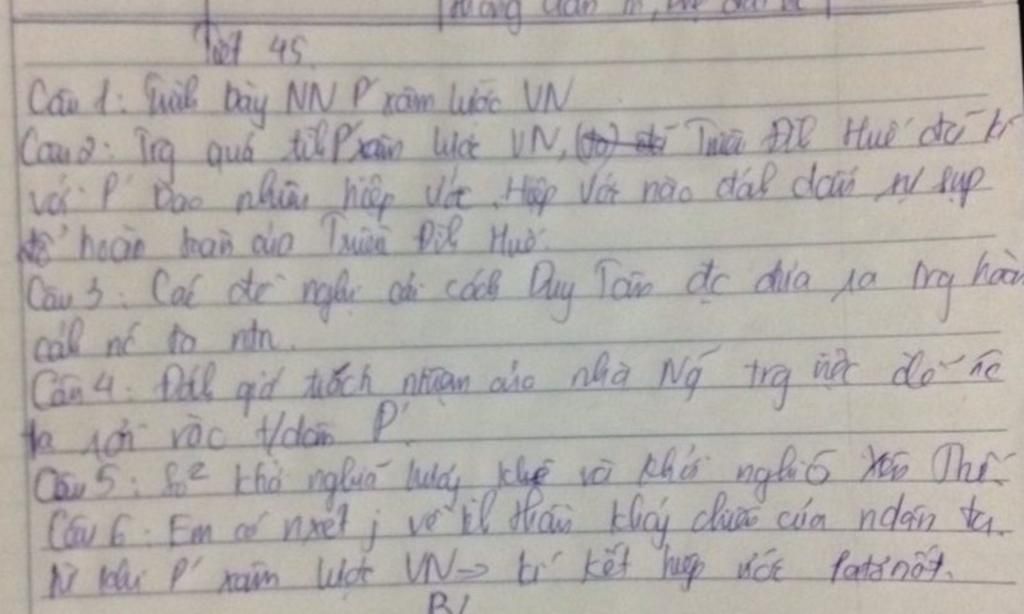 Tiết 45
Câu 1: Trình bày NN P' xâm lược VN
Câu 2: Trg quá trình P' xâm lược VN, Triều Đìl Huế đã kí
với P' bao nhiêu hiệp ước. Hiệp ước nào đáh dấu sự sụp
đổ hoàn toàn của Triều Đìl Huế.
Câu 3: Các đề nghị cải cách Duy Tân đc đưa ra trg hoàn
cảh nc ta ntn.
Câu 4: Đáh giá trách nhiệm của nhà Ng~ trg việc để nc
ta rơi vào t/dân P'.
Câu 5: So² khởi nghĩa Hương Khê và khởi nghĩa Yên Thế.
Câu 6: Em có nxét j về til thần khág chiến của ndân ta.
từ khi P' xâm lược VN → kí kết hiệp ước Patơnốt.